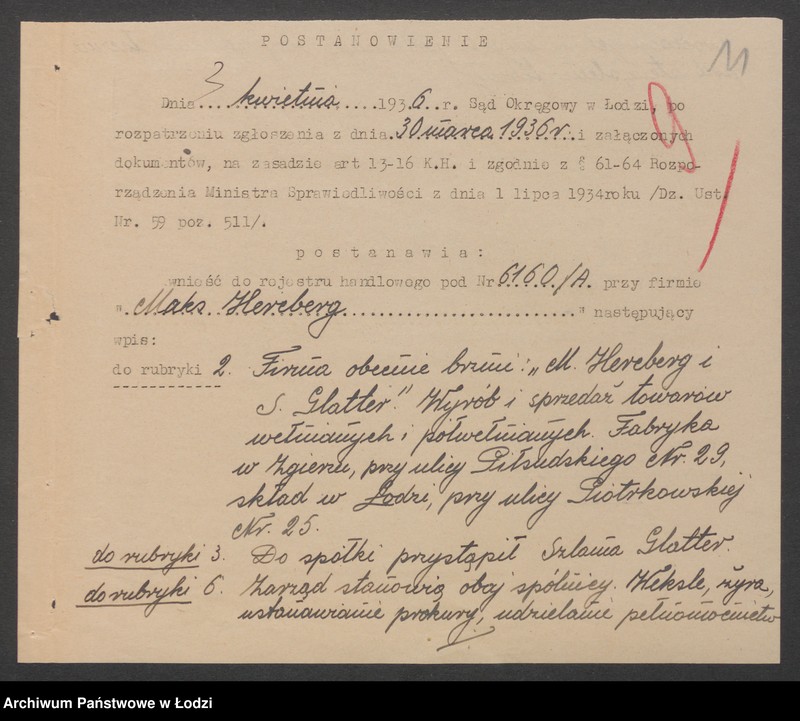 POSTANOWIENIE
11
9
Dnia 3 kwietnia, 1936. r. Sąd Okręgowy w Łodzi, po
rozpatrzeniu zgłoszenia z dnia 30 marca 1936 r. i załączonych
dokumentów, na zasadzie art 13-16 K.H. i zgodnie z § 61-64 Rozpo-
rządzenia Ministra Sprawiedliwości z dnia 1 lipca 1934roku /Dz. Ust.
Nr. 59 poz. 511/.
postanawia:
wnieść do rejestru handlowego pod Nr 6160/A. przy firmie
"Maks Hercberg" następujący
wpis:
do rubryki 2. Firma obecnie brzmi: „M. Hercberg i
S. Glatter." Wyrób i sprzedaż towarów
wełnianych i półwełnianych. Fabryka
w Zgierzu, przy ulicy Piłsudskiego Nr. 29,
skład w Łodzi, przy ulicy Piotrkowskiej
Nr. 25.
do rubryki 3. Do spółki przystąpił Szlama Glatter.
do rubryki 6. Zarząd stanowią obaj spólnicy. Weksle, żyra,
ustanawianie prokury, udzielanie pełnomocnictw
Archiwum Państwowe w Łodzi